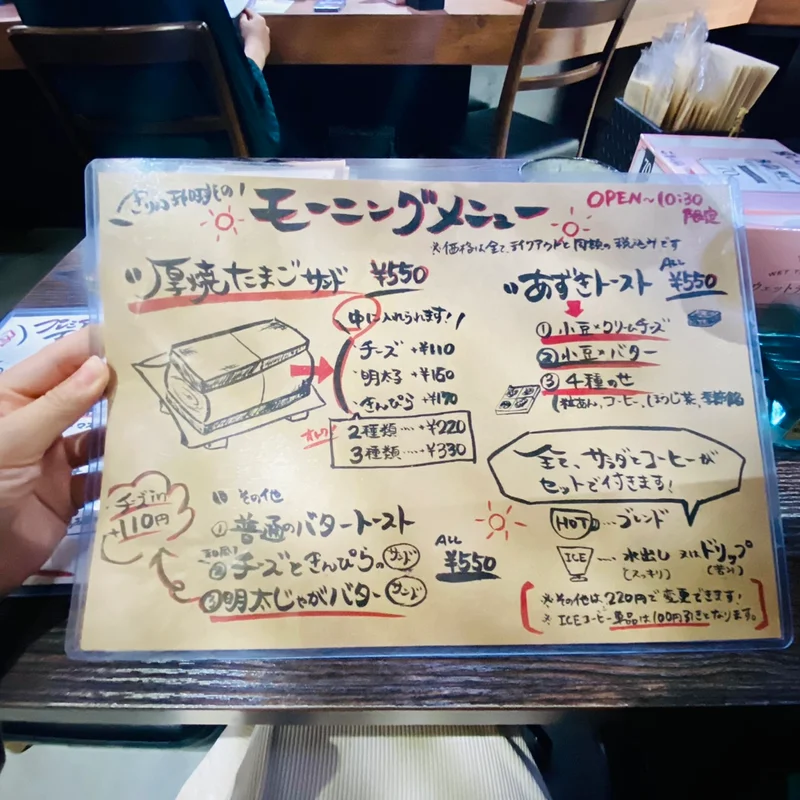 モーニングメニュー
OPEN〜10:30
限定
※価格は全て、テイクアウトと同額の税込みです
厚焼たまごサンド ¥550
中に入れられます!
チーズ +¥110
明太子 +¥160
きんぴら +¥170
2種類....+¥220
3種類....+¥330
あずきトースト ALL ¥550
① 小豆×クリームチーズ
② 小豆×バター
③ 4種のせ
(粒あん、コーヒー、ほうじ茶、
全て、サラダとコーヒーが
セットで付きます!
HOT...ブレンド
ICE...水出し 又はドリップ
(スッキリ) (苦み)
※その他は220円で変更できます!
※ICEコーヒー単品は100円引きとなります。
チーズin
+110円
その他
① 普通のバタートースト
② チーズときんぴらのサンド
③ 明太じゃがバターサンド
ALL
¥550